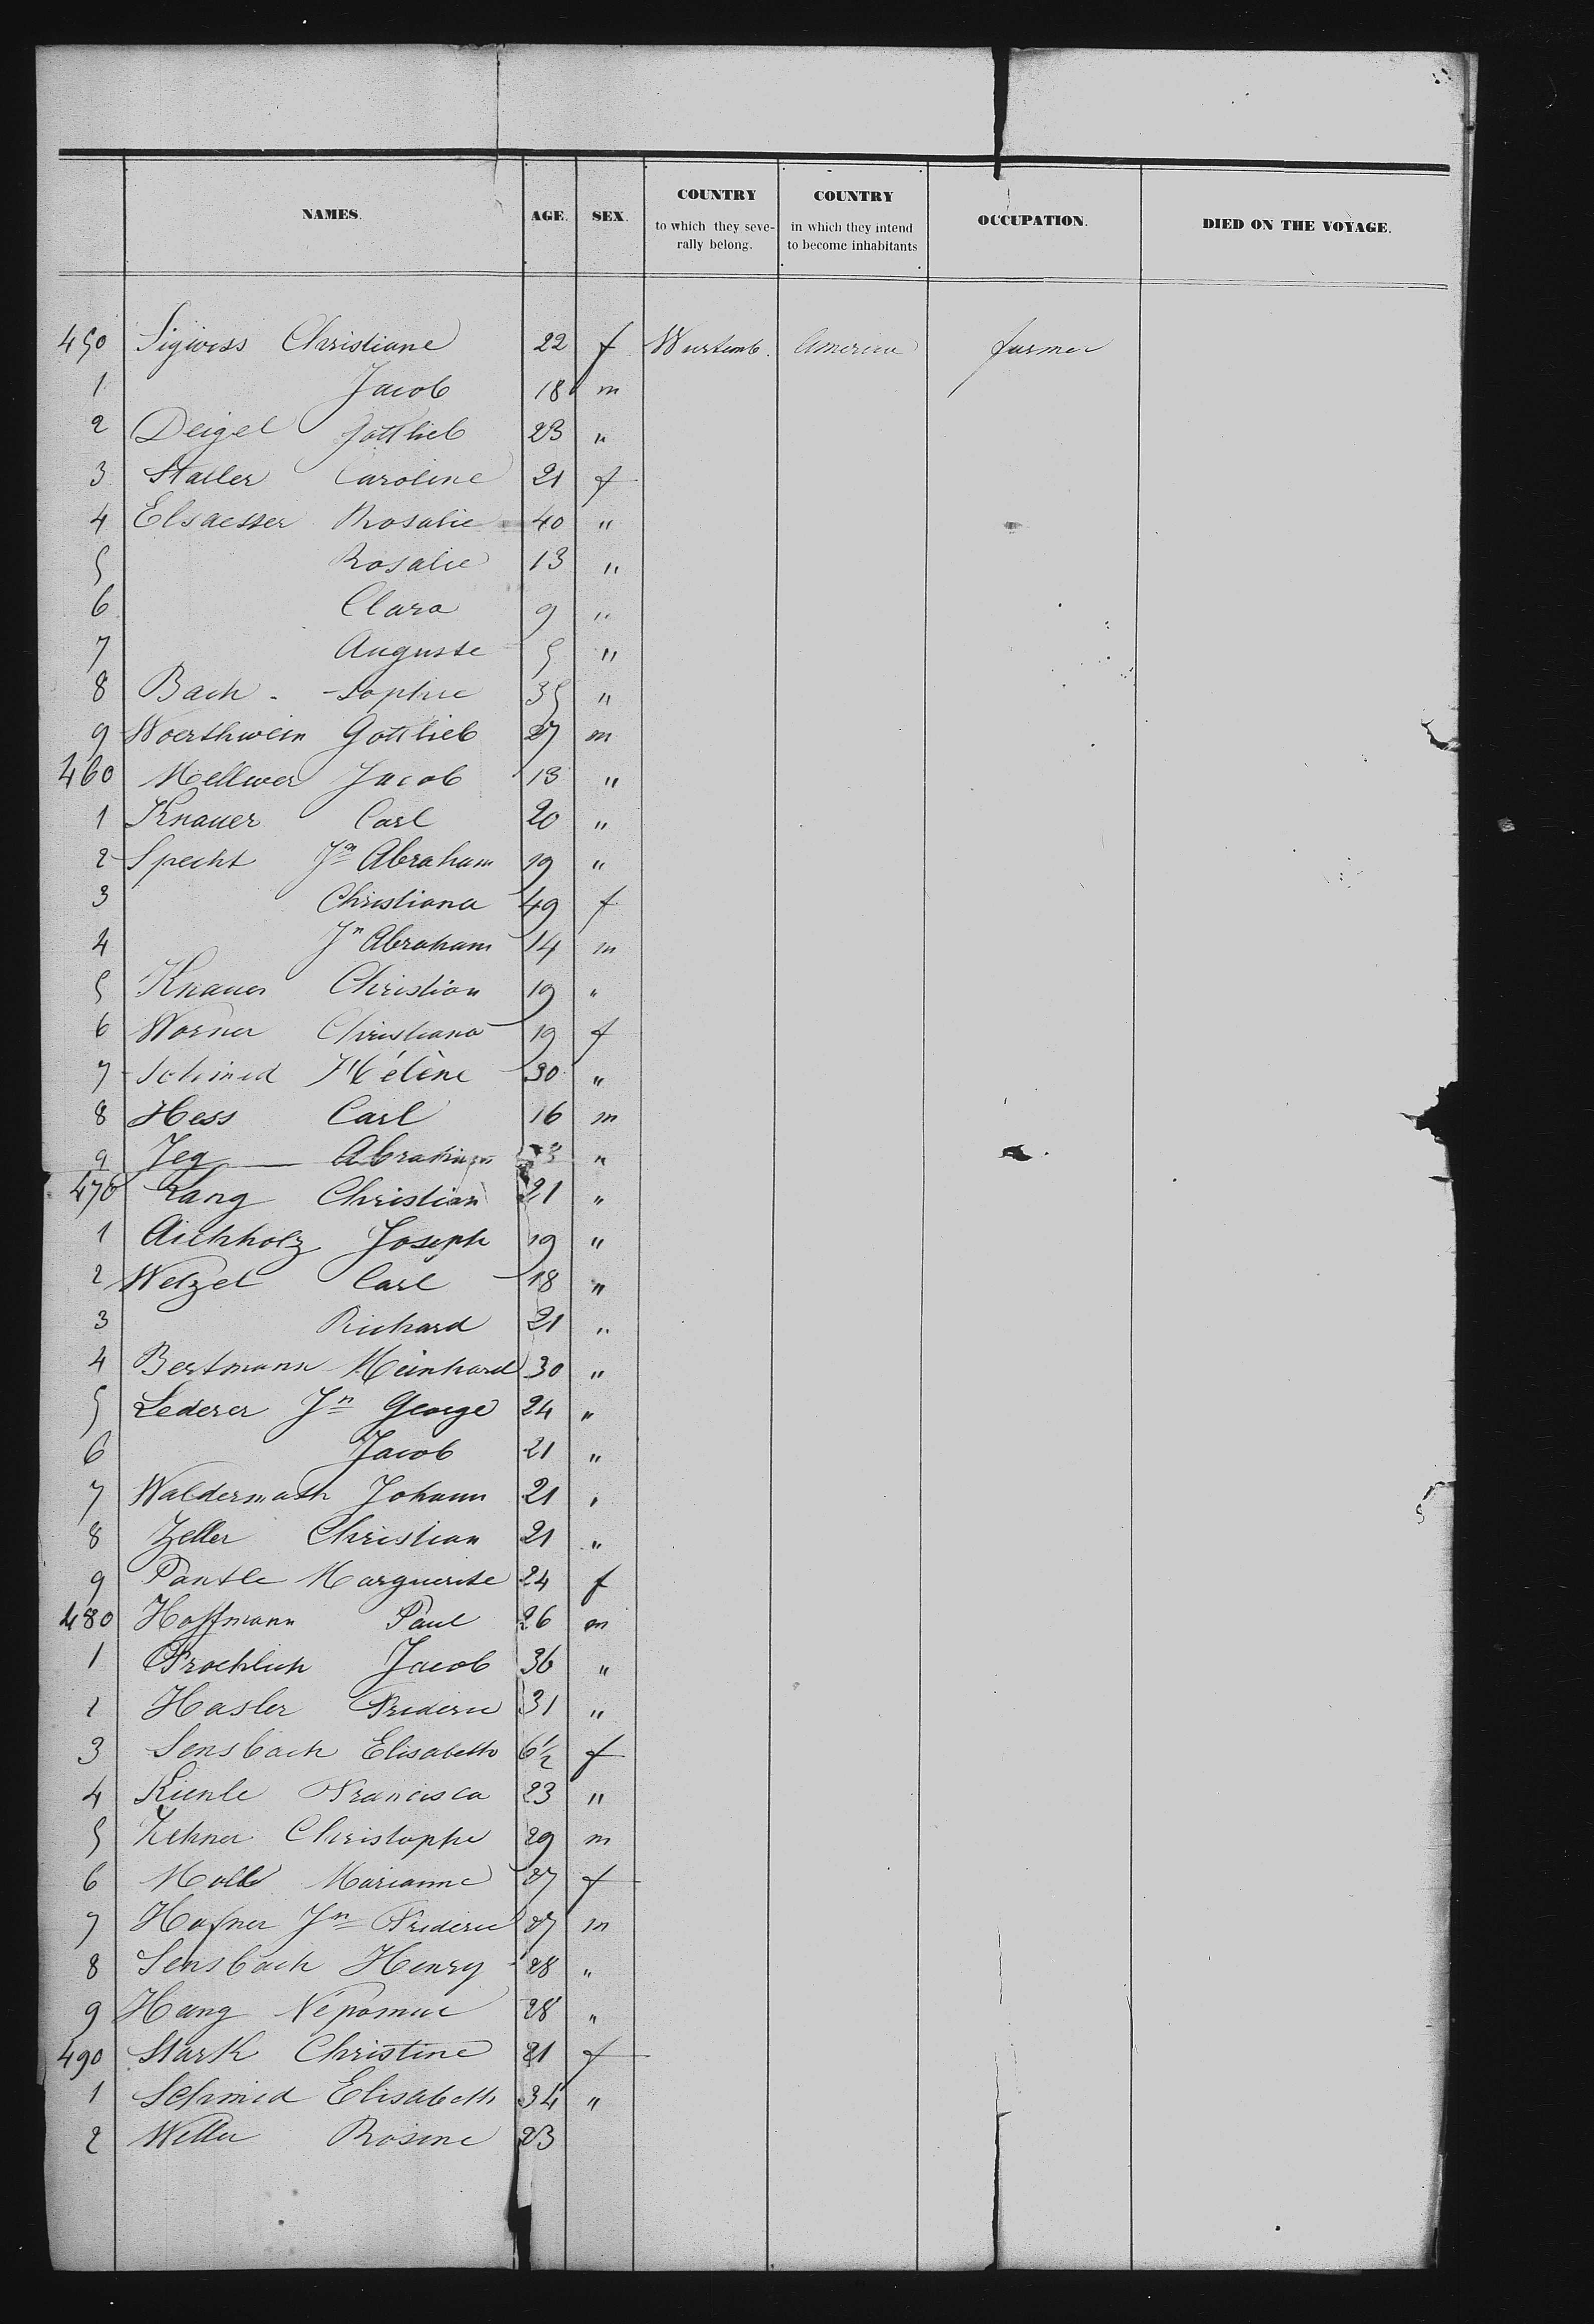 NAMES. AGE. SEX. COUNTRY to which they seve- rally belong. COUNTRY in which they intend to become inhabitants OCCUPATION. DIED ON THE VOYAGE.
450 Sigwiss Christiane 22 f Wurtemb. America farmer
1 Jacob 18 m
2 Deigel Gottlieb 23 "
3 Staller Caroline 21 f
4 Elsaesser Rosalie 40 "
5 Rosalie 13 "
6 Clara 9 "
7 Auguste 5 "
8 Bach - Sophie 35 "
9 Woerthwein Gottlieb 27 m
460 Mellwer Jacob 13 "
1 Knauer Carl 20 "
2 Specht Jn Abraham 19 "
3 Christiana 49 f
4 Jn Abraham 14 m
5 Knauer Christian 19 "
6 Worner Christiana 19 f
7 Schmid Hélène 30 "
8 Hess Carl 16 m
9 Abraham "
470 Lang Christian 21 "
1 Aichholz Joseph 19 "
2 Wetzel Carl 18 "
3 Richard 21 "
4 Bertmann Meinhard 30 "
5 Lederer Jn George 24 "
6 Jacob 21 "
7 Waldermath Johann 21 "
8 Zeller Christian 21 "
9 Pantle Marguerite 24 f
480 Hoffmann Paul 26 m
1 Froehlich Jacob 36 "
2 Hasler Frideric 31 "
3 Sensbach Elisabeth 6½ f
4 Kienle Francisca 23 "
5 Zehner Christophe 29 m
6 Moll Marianne 27 f
7 Hafner Jn Frideric 27 m
8 Sensbach Henry 28 "
9 Haug Népomuc 28 "
490 Stark Christine 21 f
1 Schmid Elisabeth 34 "
2 Weller Rosine 23